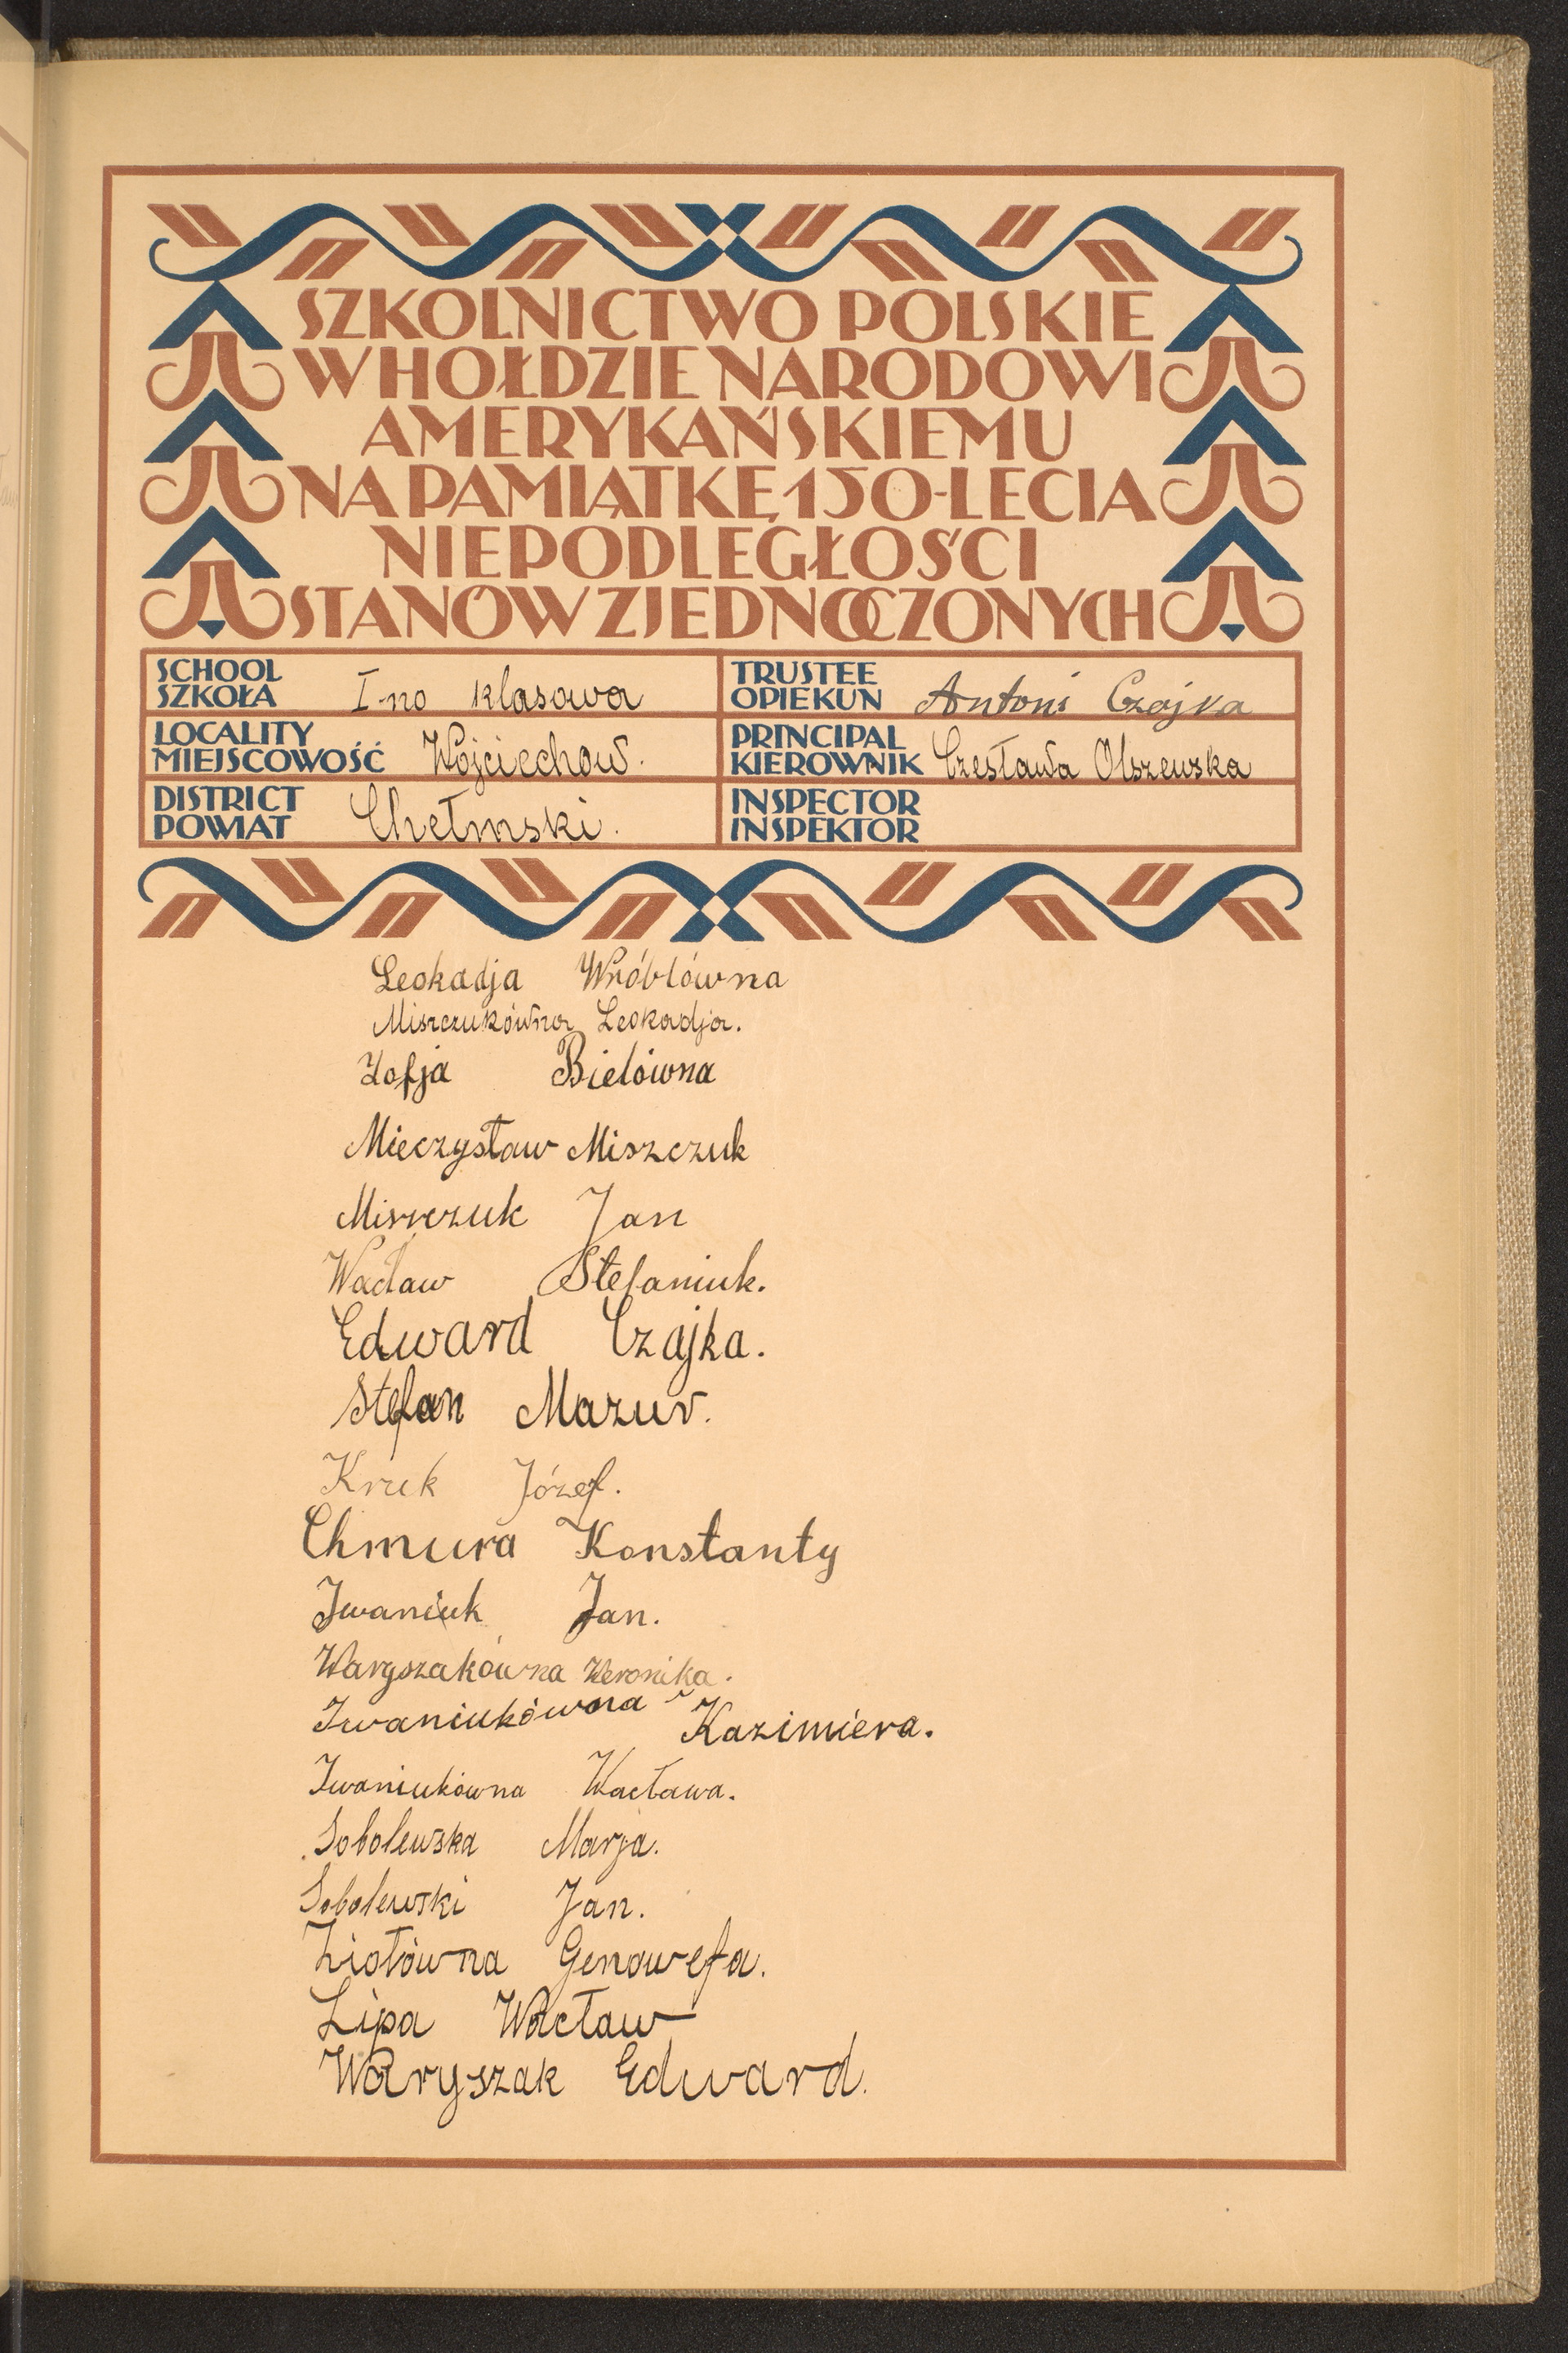 SZKOLNICTWO POLSKIE
W HOŁDZIE NARODOWI
AMERYKAŃSKIEMU
NA PAMIĄTKĘ 150-LECIA
NIEPODLEGŁOŚCI
STANÓW ZJEDNOCZONYCH
SCHOOL
SZKOŁA I-no klasowa
TRUSTEE
OPIEKUN Antoni Czajka
LOCALITY
MIEJSCOWOŚĆ Wojciechów.
PRINCIPAL
KIEROWNIK Czesława Olszewska
DISTRICT
POWIAT Chełmski.
INSPECTOR
INSPEKTOR
Leokadja Wróblówna
Miszczukówna Leokadja.
Zofja Bielówna
Mieczysław Miszczuk
Miszczuk Jan
Wacław Stefaniuk.
Edward Czajka.
Stefan Mazur.
Kruk Józef.
Chmura Konstanty
Iwaniuk Jan.
Waryszakówna Weronika.
Iwaniukówna Kazimiera.
Iwaniukówna Wacława.
Sobolewska Marja.
Sobolewski Jan.
Ziołówna Genowefa.
Lipa Wacław
Waryszak Edward.